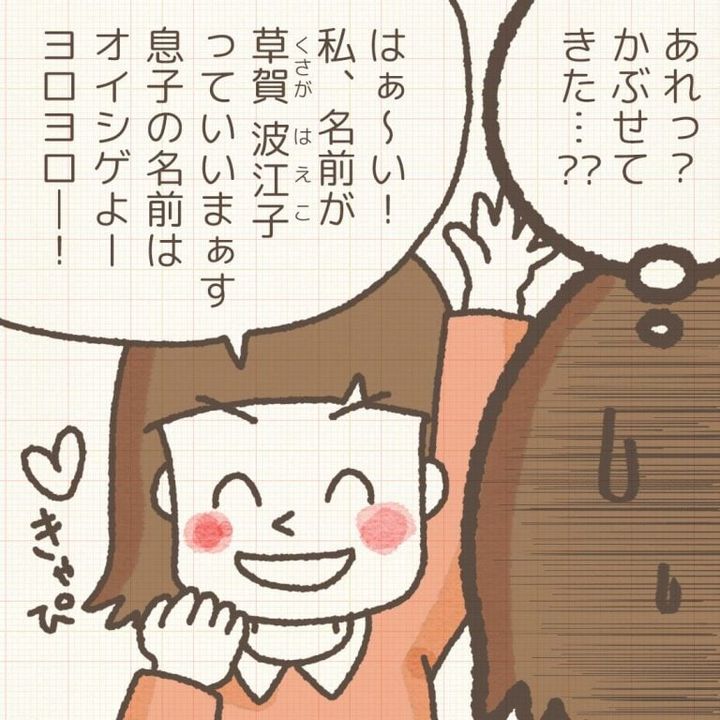 あれっ？
かぶせて
きた…??
はぁ〜い！
私、名前が
草賀 波江子
くさが はえこ
っていいまぁす
息子の名前は
オイシゲよー
ヨロヨロー！
きゃぴ